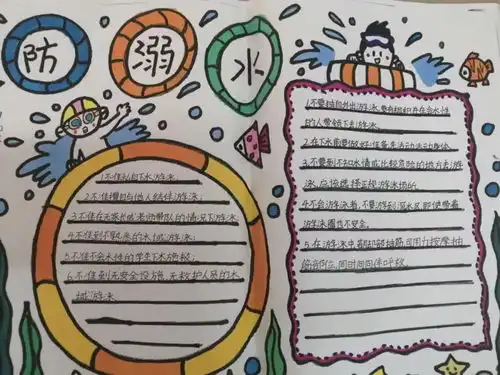 防溺水
1.不准私自下水游泳;
2.不准擅自与他人结伴游泳;
3.不准在无家长或老师带队的情况下游泳
4.不准到不熟悉的水域游泳;
5.不准不会水性的学生下水施救;
6.不准到无安全设施、无救护人员的水
域游泳
1.不要独自外出游泳,要有组织并在会水性
的人带领下去游泳。
2.在下水前要做好准备活动活动身体。
3.不要到不知水情或比较危险的地方去游
泳,应选择正规游泳场所。
4.不会游泳者,不要游到深水区,即使带着
游泳圈也不安全。
5.在游泳中,若小腿抽筋,可用力按摩抽
筋部位,同时向同伴呼救